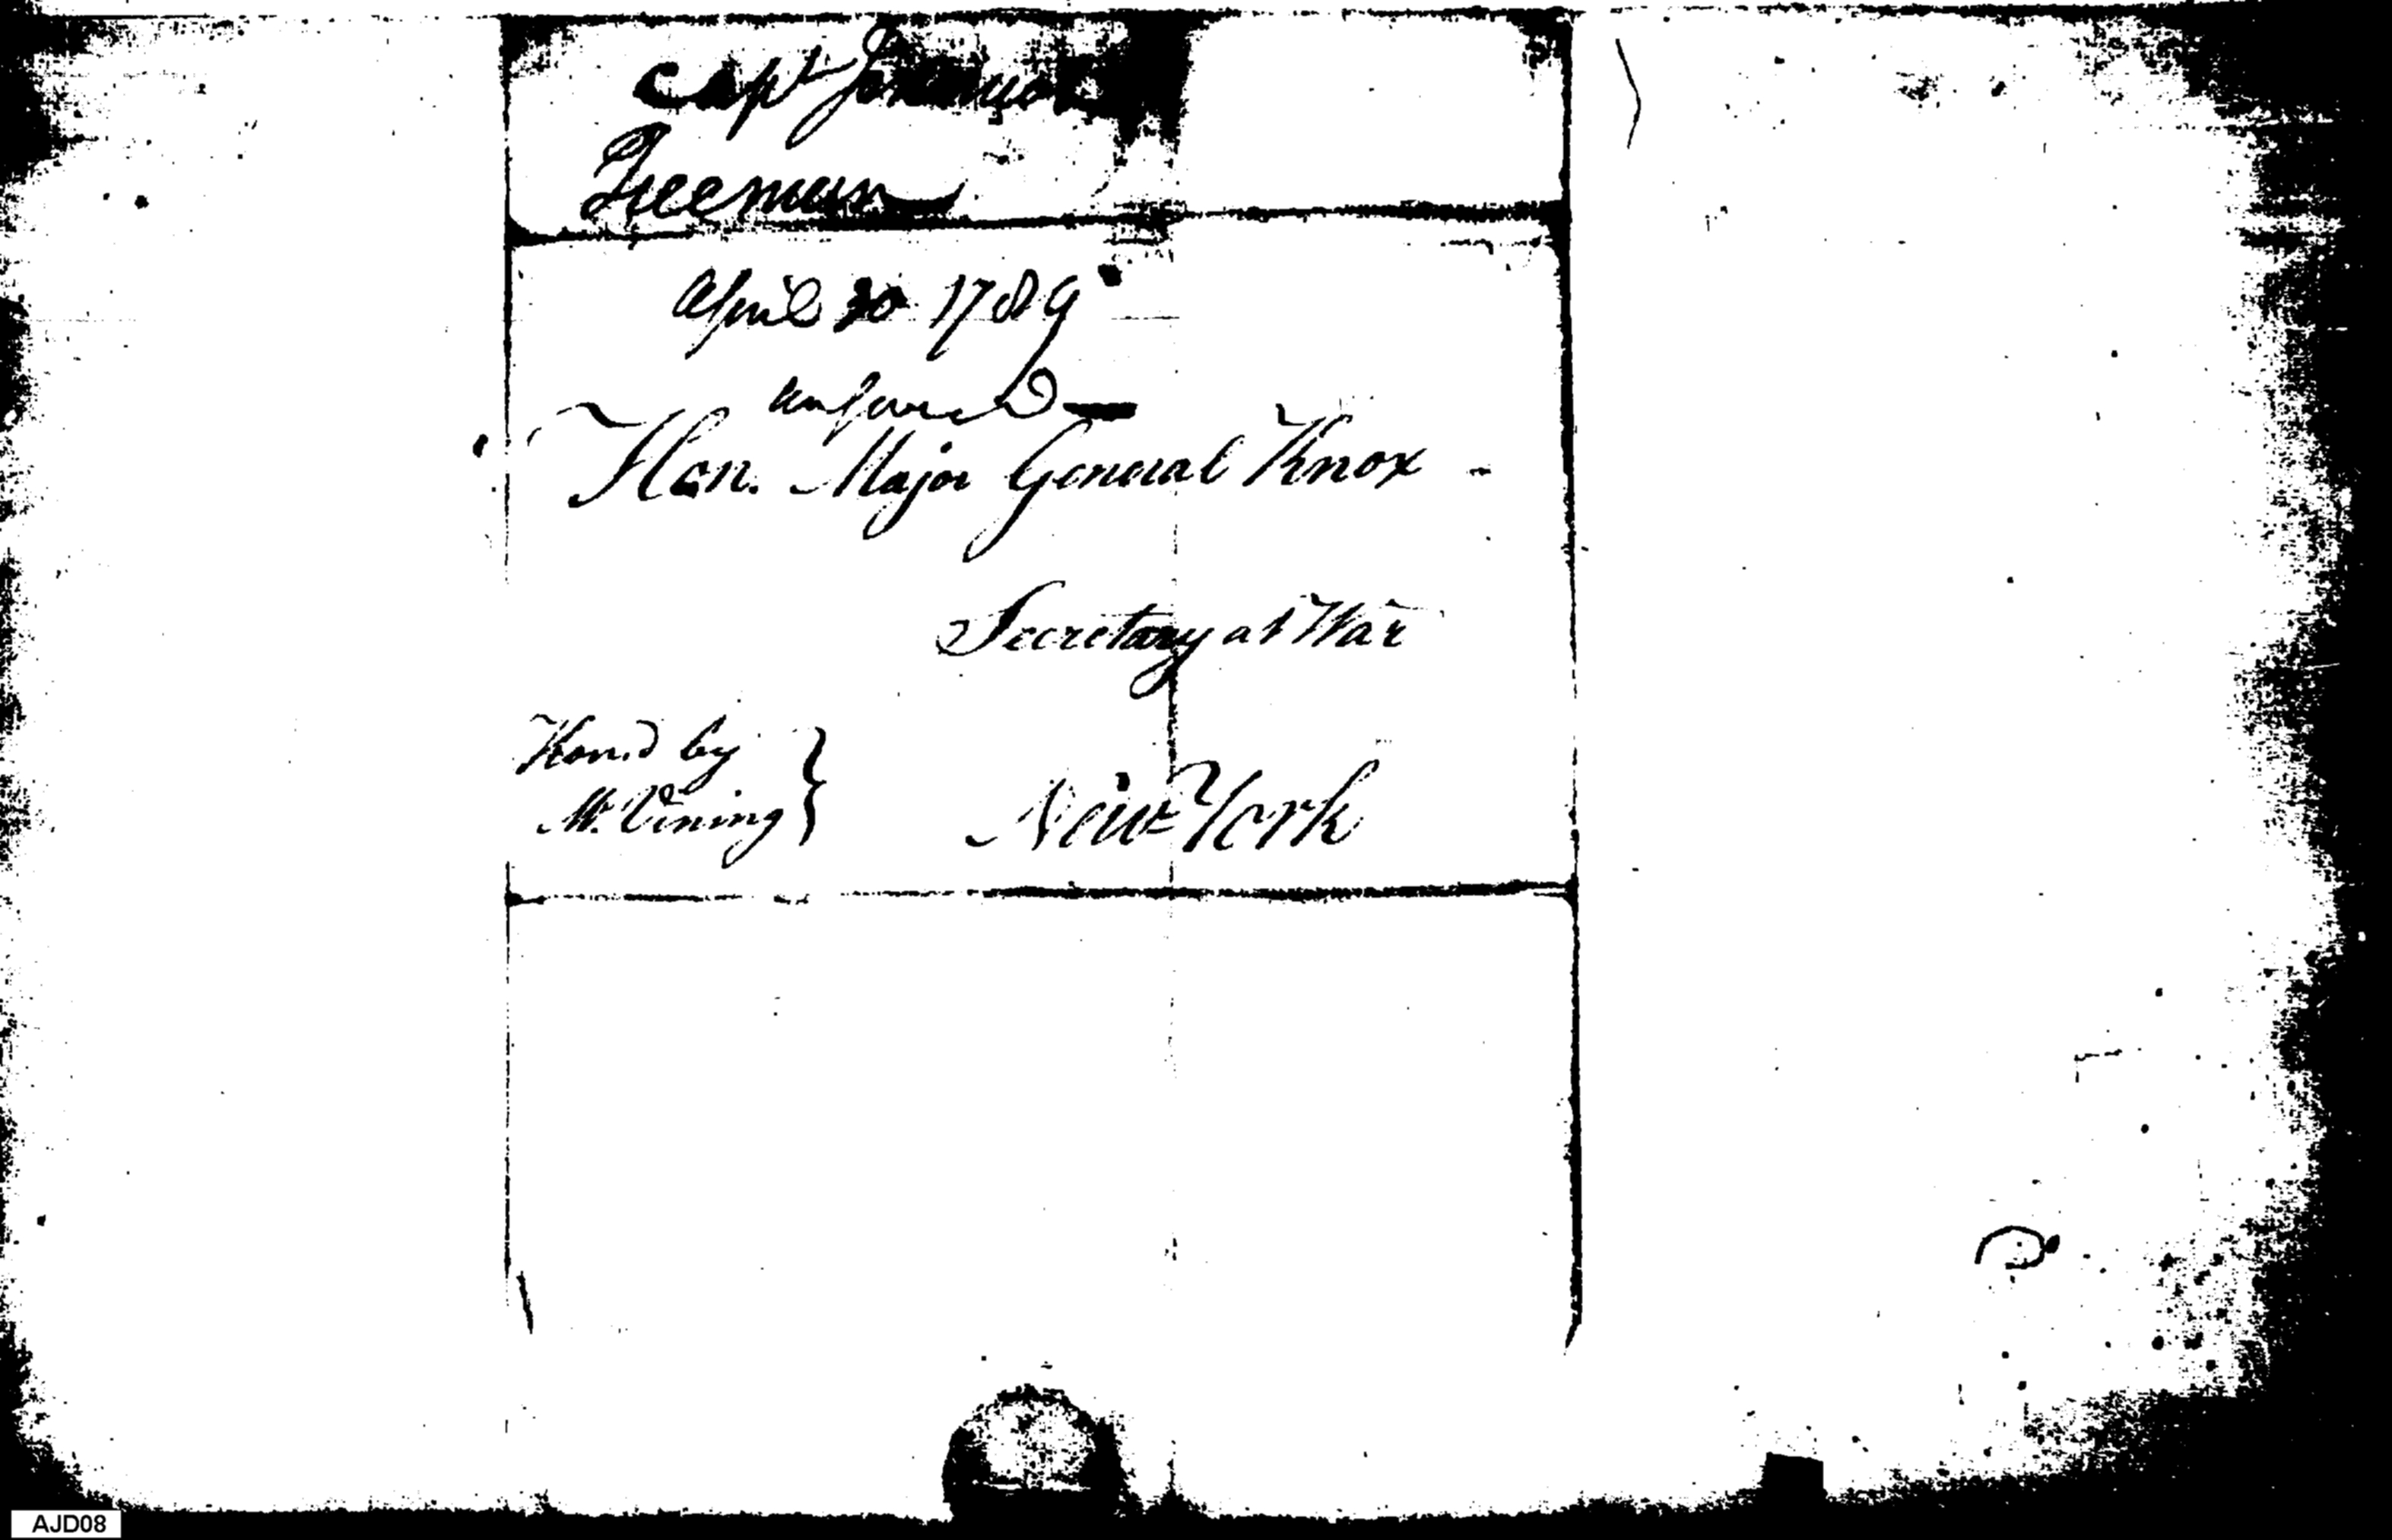 Capt
Freeman
April 30 1789
answered
Hon. Major General Knox
Secretary at War
Hon.d by
Mr. Vining
New York
AJD08